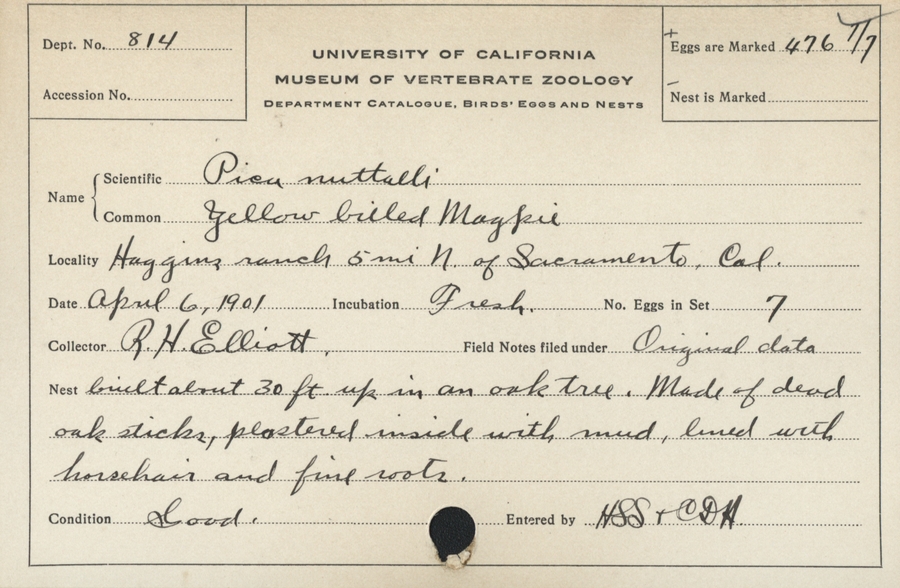 Dept. No. 814
Accession No.
UNIVERSITY OF CALIFORNIA
MUSEUM OF VERTEBRATE ZOOLOGY
DEPARTMENT CATALOGUE, BIRDS' EGGS AND NESTS
+ Eggs are Marked 476 7/7
- Nest is Marked
Name { Scientific Pica nuttalli
Common Yellow billed Magpie
Locality Haggins ranch 5 mi N. of Sacramento, Cal.
Date April 6, 1901 Incubation Fresh. No. Eggs in Set 7
Collector R. H. Elliott. Field Notes filed under Original data
Nest built about 30 ft. up in an oak tree. Made of dead
oak sticks, plastered inside with mud, lined with
horsehair and fine roots.
Condition Good. Entered by HSS + CDH.